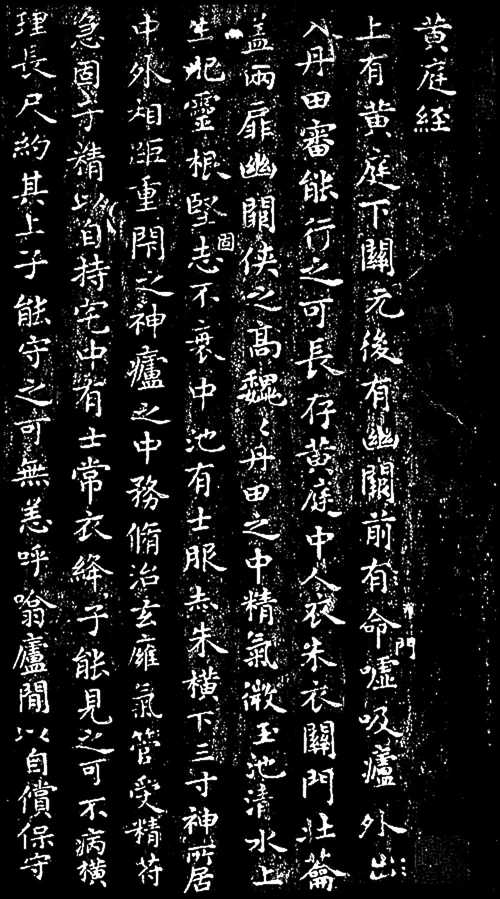 黄庭經
上有黄庭下關元後有幽闕前有命門嘘吸廬外出
入丹田審能行之可長存黄庭中人衣朱衣關門壯籥
盖兩扉幽闕俠之髙巍〻丹田之中精氣微玉池清水上
生肥靈根堅固志不衰中池有士服赤朱横下三寸神所居
中外相距重閇之神廬之中務脩治玄廱氣管受精苻
急固子精以自持宅中有士常衣絳子能見之可不病横
理長尺約其上子能守之可無恙呼噏廬閒以自償保守